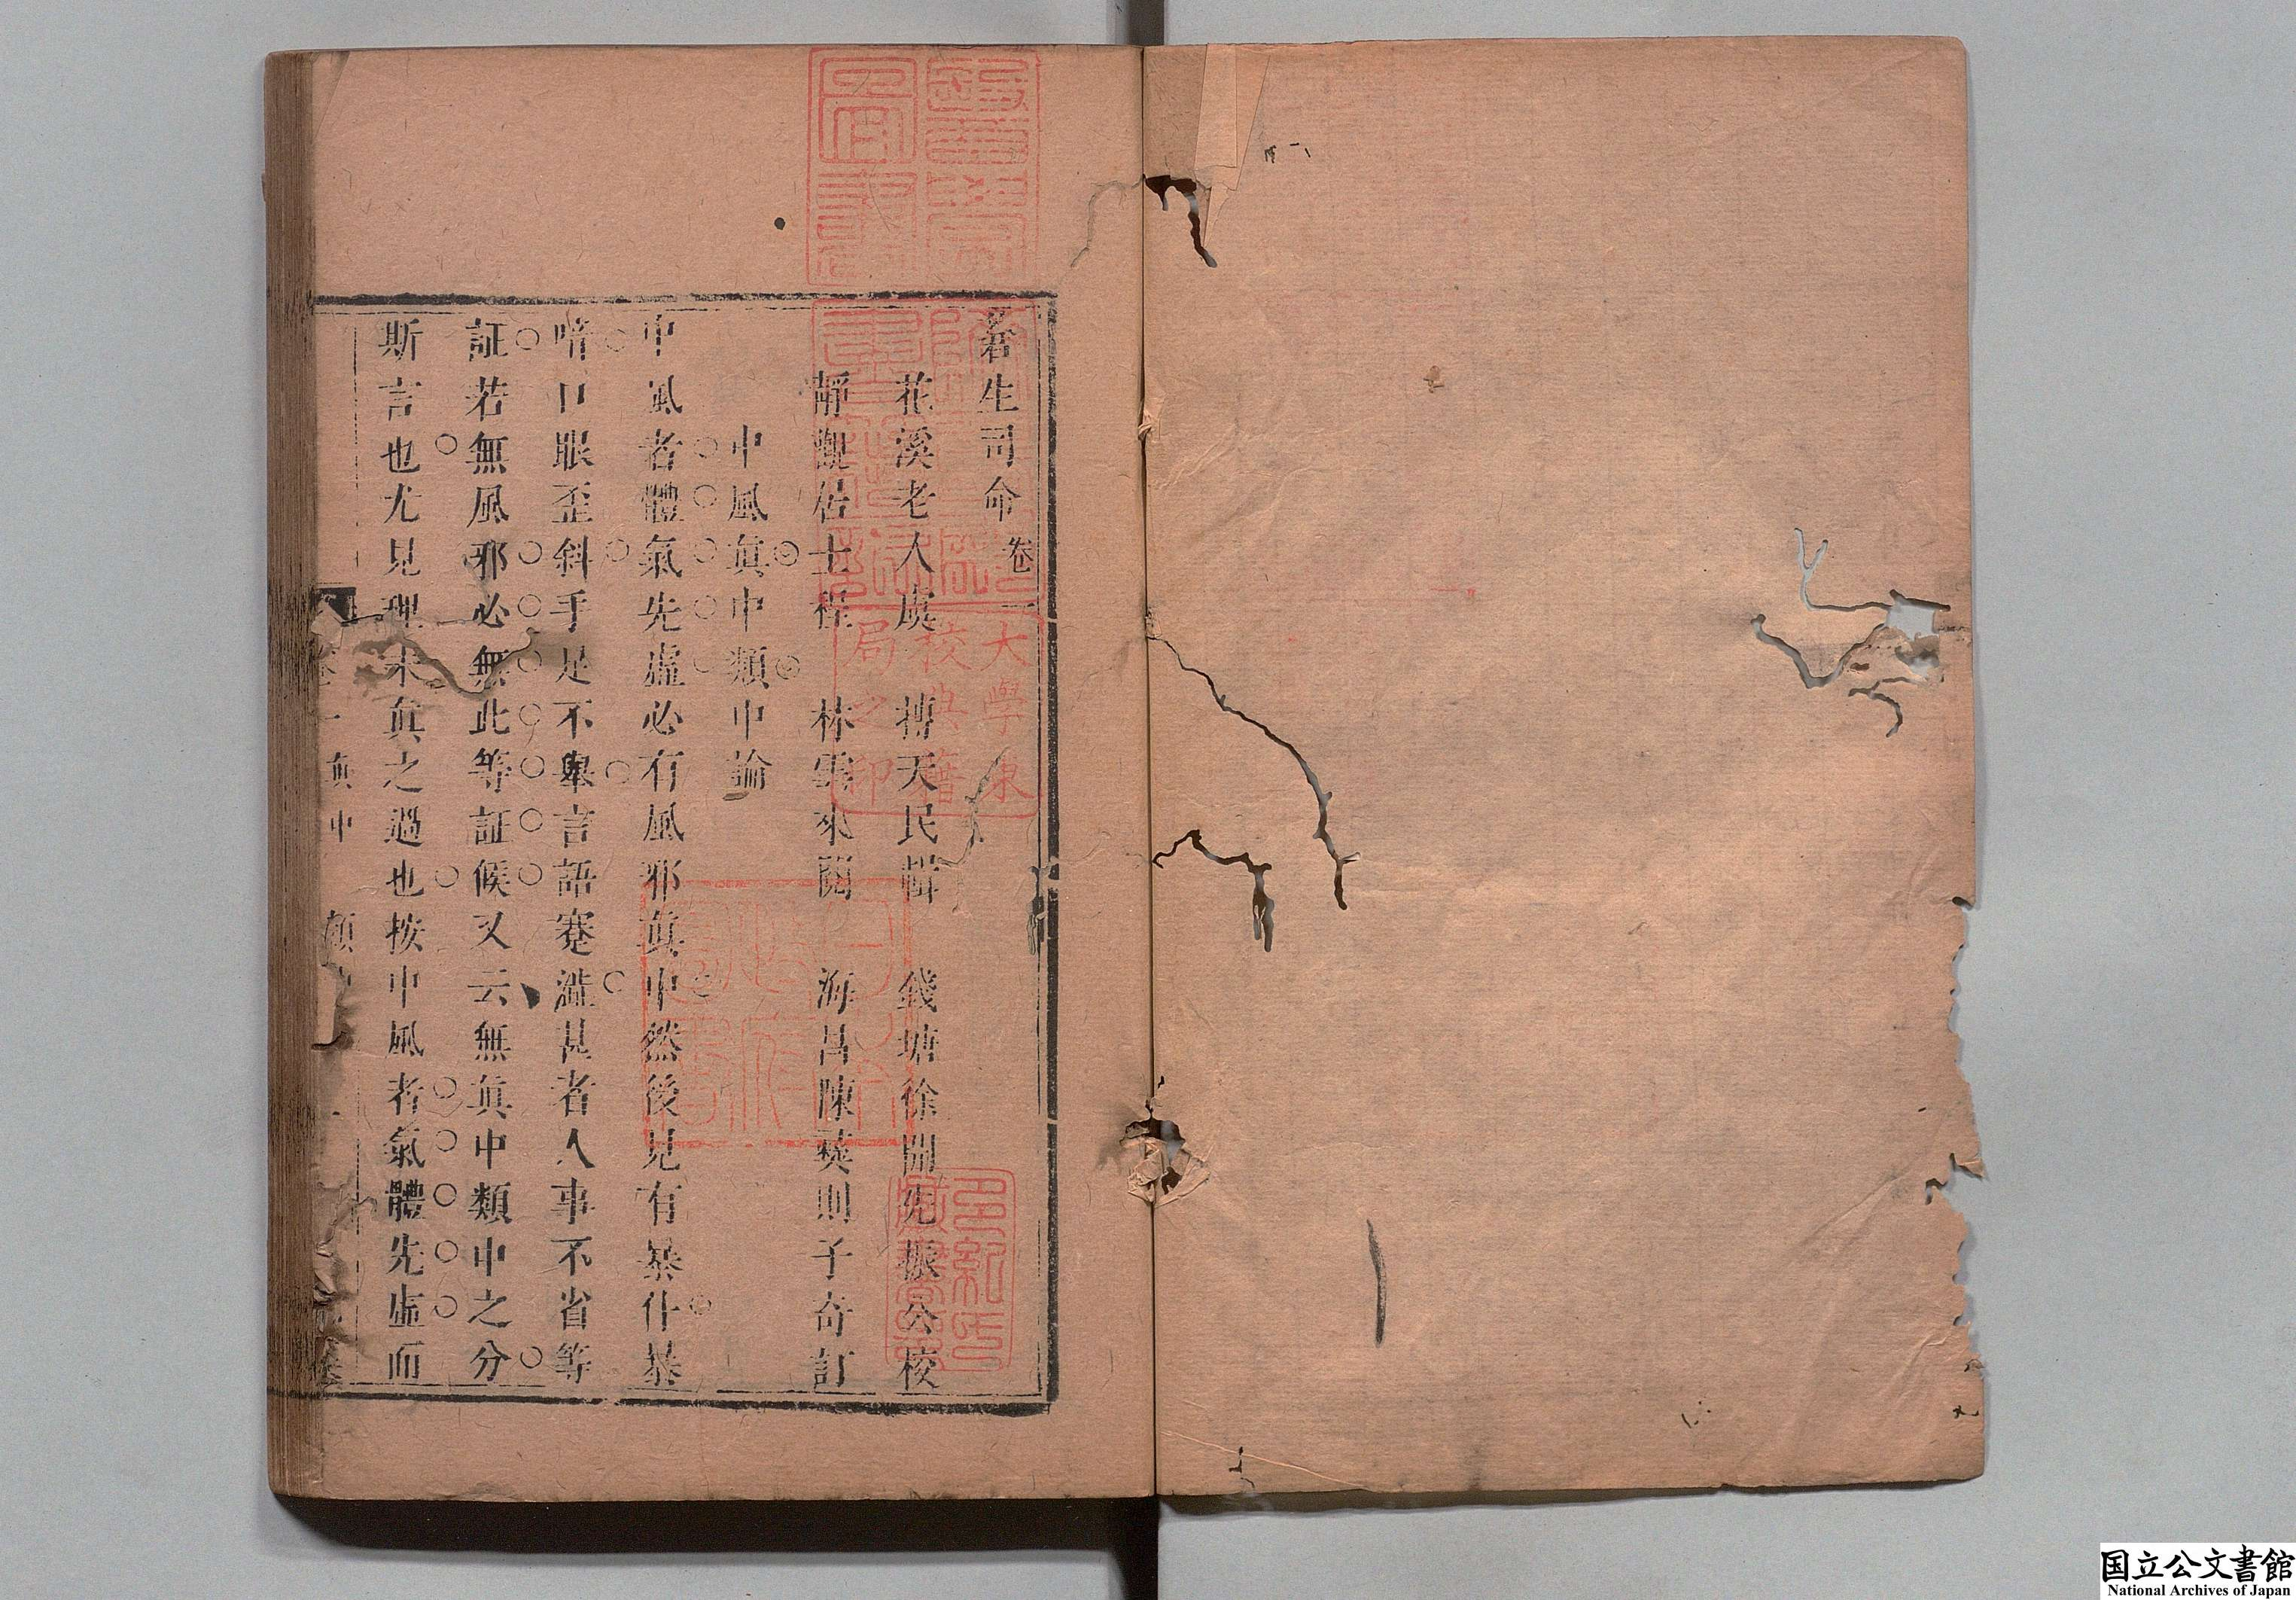 蒼生司命 卷一
花溪老人虞 摶天民輯 錢塘徐開先振公校
靜觀居士程 林雲來閱 海昌陳葵則子奇訂
中風眞中類中論
中風者體氣先虛必有風邪眞中然後見有暴仆暴
喑口眼歪斜手足不舉言語蹇澁甚者人事不省等
証若無風邪必無此等証候又云無眞中類中之分
斯言也尤見理未眞之過也按中風者氣體先虛而
卷一 眞中 類中
大學東
校典籍
局之印
国立公文書館
National Archives of Japan